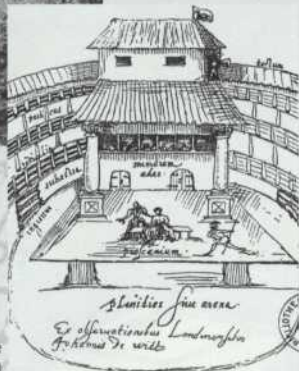 tectum
porticus
sedilia
ingressus
mimorum
ædes
proscænium
planities siue arena
Ex observationibus Londinensibus
Johannis de witt